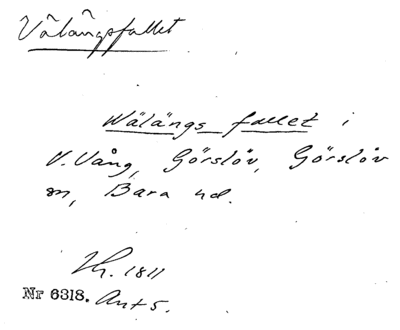 Välängsfallet
Wälängs fallet i
V. Vång, Görslöv, Görslöv
sn, Bara hd.
Lh. 1811
Nr 6318. Ant 5.